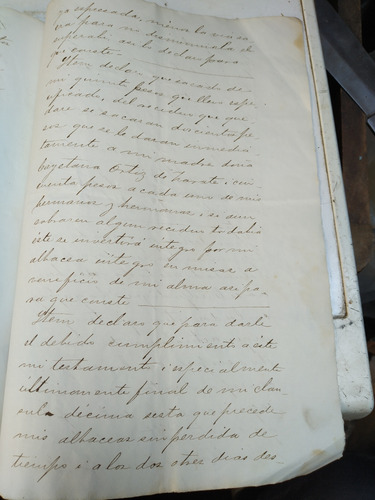 ga espresada, ni con la masa
ya para no disminuirla el
superabit, así lo declaro para
que conste.
Item declaro, que sacado de
mi quinto pesos que llevo espe-
cificado, del recidun que que-
dare se sacaran doscientos pe-
sos que se le daran inmedia-
tamente a mi madre doña
Cayetana Ortiz de Zarate, i cin-
cuenta pesos a cada uno de mis
hermanos y hermanas, i si aun
sobrase algun recidun todabia
este se invertirá integro por mi
albacea integro en misas a
beneficio de mi alma asi pa-
ra que conste
Item declaro que para darle
el debido cumplimiento a este
mi testamento i especialmente
ultimamente final de mi clau-
sula decima sesta que precede
mis albaceas sin perdida de
tiempo i a los dos o tres dias des-